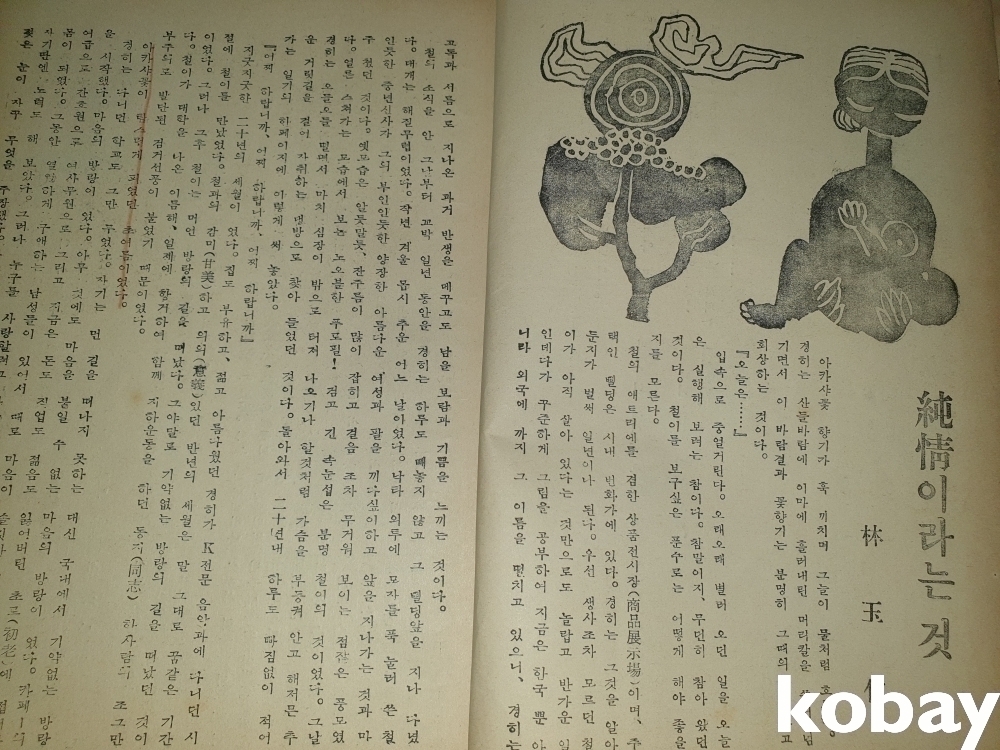 純情이라는 것
林玉
아카샤꽃 향기가 훅 끼치며 그늘이 물처럼
경히는 산들바람에 이마에 흘러내린 머리칼을
기면서 이 바람결과 꽃향기는 분명히 그때의
회상하는 것이다.
『오늘은……』
입속으로 중얼거린다. 오래오래 별러 오던 일을 오늘
은 실행해 보려는 참이다. 참말이지, 무던히 참아 왔던
것이다. 철이를 보구싶은 푼수로는 어떻게 해야 좋을
지를 모른다.
철의 애트리에를 겸한 상품전시장(商品展示場)이며, 주
택인 빌딩은 시내 번화가에 있다. 경히는 그것을 알아
둔지가 벌써 일년이나 된다. 우선 생사조차 모르던 철
이가 아직 살아 있다는 것만으로도 놀랍고 반가운
인데다가 꾸준하게 그림을 공부하여 지금은 한국 뿐 아
니라 외국에까지 그 이름을 떨치고 있으니, 경히는
고독과 서름으로 지나온 과거 반생을 메꾸고도 남을 보람과 기쁨을 느끼는 것이다.
철의 소식을 안 그날부터 꼬박 일년 동안을 경히는 하루도 빼놓지 않고 그 빌딩앞을 지나 다녔
다. 대개는 해질무렵이었다. 작년 겨울 몹시 추운 어느 날이었다. 낙타 외투에 모자를 푹 눌러 쓴 철
인듯한 중년신사가 그의 부인인듯한 양장한 아름다운 여성과 팔을 끼다싶이하고 앞을 지나가는 것과 마
주 첬던 것이다. 옛모습은 알듯말듯, 잔주름이 많이 잡히고 걸음 조차 무거워 보이는 점잖은 풍모였
다. 얼른 스쳐가는 모습에서 보는 노오불한 푸로필! 검고 긴 속눈섭은 분명 철이의 것이었다. 그날
경히는 오들오들 떨면서 마치 심장이 밖으로 터저 나오기나 할것처럼 가슴을 부등켜 안고 해저므른 추
운 거릿길을 걸어 자취하는 냉방으로 찾아 들었던 것이다. 돌아와서 二十년내 하루도 빠짐없이 적어
가는 일기의 하페이지에 이렇게 써 놓았다.
『어찌 하랍니까, 어찌 하랍니까, 어찌 하랍니까』
지긋지긋한 二十년의 세월이 였다. 집도 부유하고, 젊고 아름다웠던 경히가 K전문 음악과에 다니던 시
절에 철이를 만났었다. 철과의 감미(甘美)하고 의의(意義)있던 반년의 세월은 말 그대로 꿈같은 기간
이었다. 그러나 그후 철이는 머언 방랑의 길을 떠났다. 그야말로 기약없는 방랑의 길을 떠났던 것이
다. 철이가 대학을 나온 이름해, 일제에 항거하여 함께 지하운동을 하던 동지(同志) 하사람의 조그만
부주의로 발단된 검거선풍이 불었기 때문이었다.
아카샤꽃이 탐스럽게 피었던 초여름이었다.
경히는 다니던 학교도 그만 두었다. 자기는 먼 길을 떠나지 못하는 대신 국내에서 기약없는 방랑
을 시작했다. 마음의 방랑이 었다. 아무 것에도 마음을 붙일 수 없는 마음의 방랑이 었다. 카페ー의
여급으로 간호원으로 여사무원으로 그리고 지금은 돈도 직업도 젊음도 잃어버린 초로(初老)에
몸이 되였다. 그동안 열렬하게 구애하는 남성들이 있어서 때로 마음이
자기딴엔 노력도 해 보았다. 그러나 누구를 사랑할려고
젖은 눈이 자꾸 무엇을
kobay